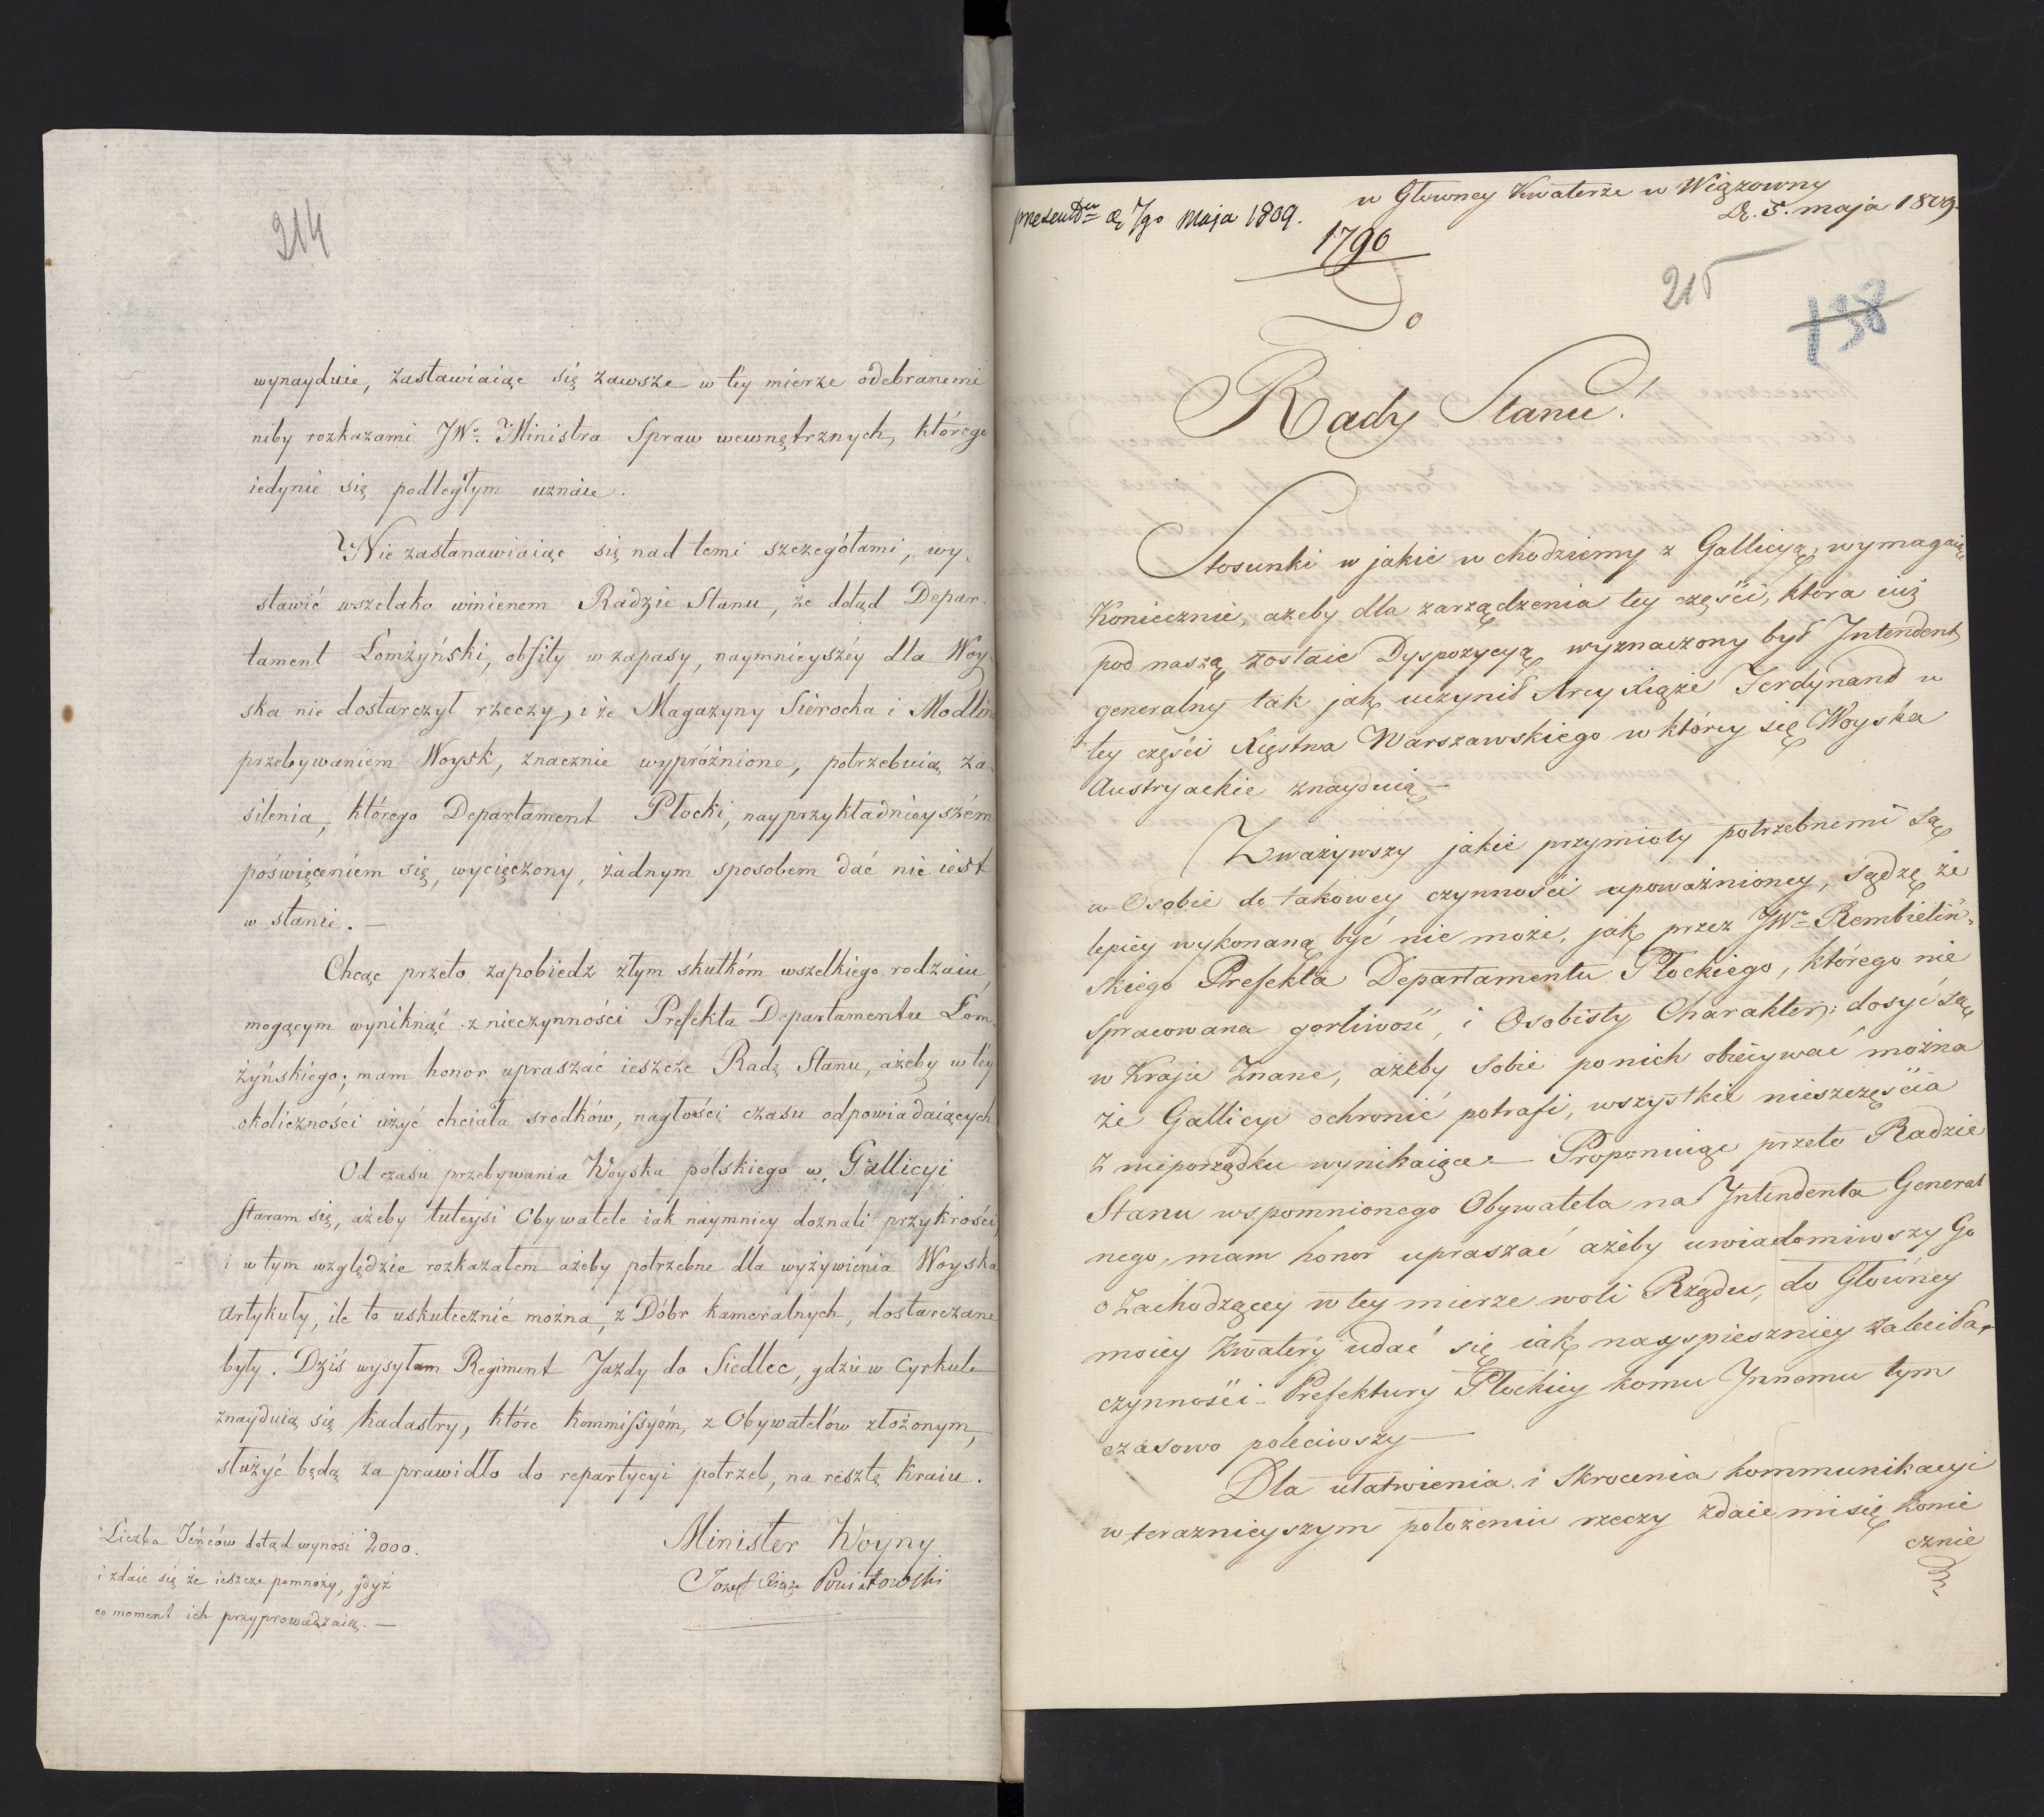 214
wynayduie, zastawiaiąc się zawsze w tey mierze odebranemi
niby rozkazami JWo. Ministra Spraw wewnętrznych, którego
iedynie się podległym uznaie.
Nie zastanawiaiąc się nad temi szczegółami, wy-
stawić wszelako winienem Radzie Stanu, że dotąd Depar-
tament Łomżyński, obfity w zapasy, naymnieyszéy dla Woy
ska nie dostarczył rzeczy, i że Magazyny Siérocka i Modlin
przebywaniem Woysk, znacznie wypróżnione, potrzebuią za-
silenia, którego Departament Płocki, nayprzykładnieyszém
poświęceniem się, wycięczony, żadnym sposobem dać nie iest
w stanie. —
Chcąc przeto zapobiedz złym skutkóm wszelkiego rodzaiu
mogącym wyniknąć z nieczynności Prefekta Departamentu Łom-
żyńskiego; mam honor upraszać ieszcze Radę Stanu, ażeby w téy
okoliczności użyć chciała srodków, nagłości czasu odpowiadaiących
Od czasu przebywania Woyska polskiego w Gallicyi
staram się, ażeby tuteysi Obywatele iak naymniey doznali przykrości,
i w tym względzie rozkazałem ażeby potrzebne dla wyżywienia Woyska
Artykuły, ile to uskutecznić można, z Dóbr Kameralnych, dostarczane
były. Dziś wysyłam Regiment Jazdy do Siedlec, gdzie w Cyrkule
znayduią się Kadastry, które Kommissyóm, z Obywatelów złożonym,
służyć będą za prawidło do repartycyi potrzeb, na resztę Kraiu.
Minister Woyny
Jozef Xiąże Poniatowski
Liczba Jeńców dotąd wynosi 2000.
i zdaie się że ieszcze pomnoży, gdyż
co moment ich przyprowadzaią. —
w Głowney Kwaterze w Wiązowny
D. 5. maja 1809
1790
215
138
Do
Rady Stanu!
Stosunki w jakie wchodziemy z Gallicyą, wymagaią
Koniecznie, ażeby dla zarządzenia tey części, która iuż
pod naszą zostaie Dyspozycyą wyznaczony był Intendent
generalny tak jak uczynił Arcy Xiąże Ferdynand w
tey części Xięstwa Warszawskiego w którey się Woyska
Austryackie znayduią —
Zważywszy jakie przymioty potrzebnemi są
w Osobie do takowey czynności upoważnioney, sądzę że
lepiey wykonaną być nie może, jak przez JWo Rembieliń-
skiego Prefekta Departamentu Płockiego, którego nie
spracowana gorliwość, i Osobisty Charakter; dosyć są
w Kraju Znane, ażeby sobie po nich obiecywać można
że Gallicyi ochronić potrafi, wszystkie nieszczęścia
z nieporządku wynikaiące — Proponuiąc przeto Radzie
Stanu wspomnionego Obywatela na Intendenta General
nego, mam honor upraszać ażeby uwiadomiwszy Go
o Zachodzącey w tey mierze woli Rządu, do Głowney
moiey Kwatery udać się iak nayspieszniey zaleciła,
czynności Prefektury Płockiey komu Innemu tym
czasowo poleciwszy —
Dla ułatwienia i Skrocenia kommunikacyi
w teraznieyszym położeniu rzeczy zdaie mi się konie
cznie